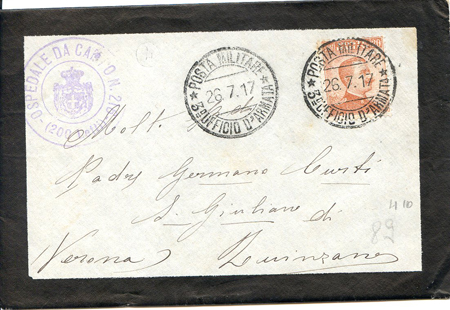 OSPEDALE DA CAMPO N.
POSTA MILITARE
26.7.17
3º UFFICIO Dº ARMATA
POSTA MILITARE
26.7.17
3º UFFICIO Dº ARMATA
Molt.
Padre Germano Curti
S. Giuliano di
Verona Quinzano
4 110
89